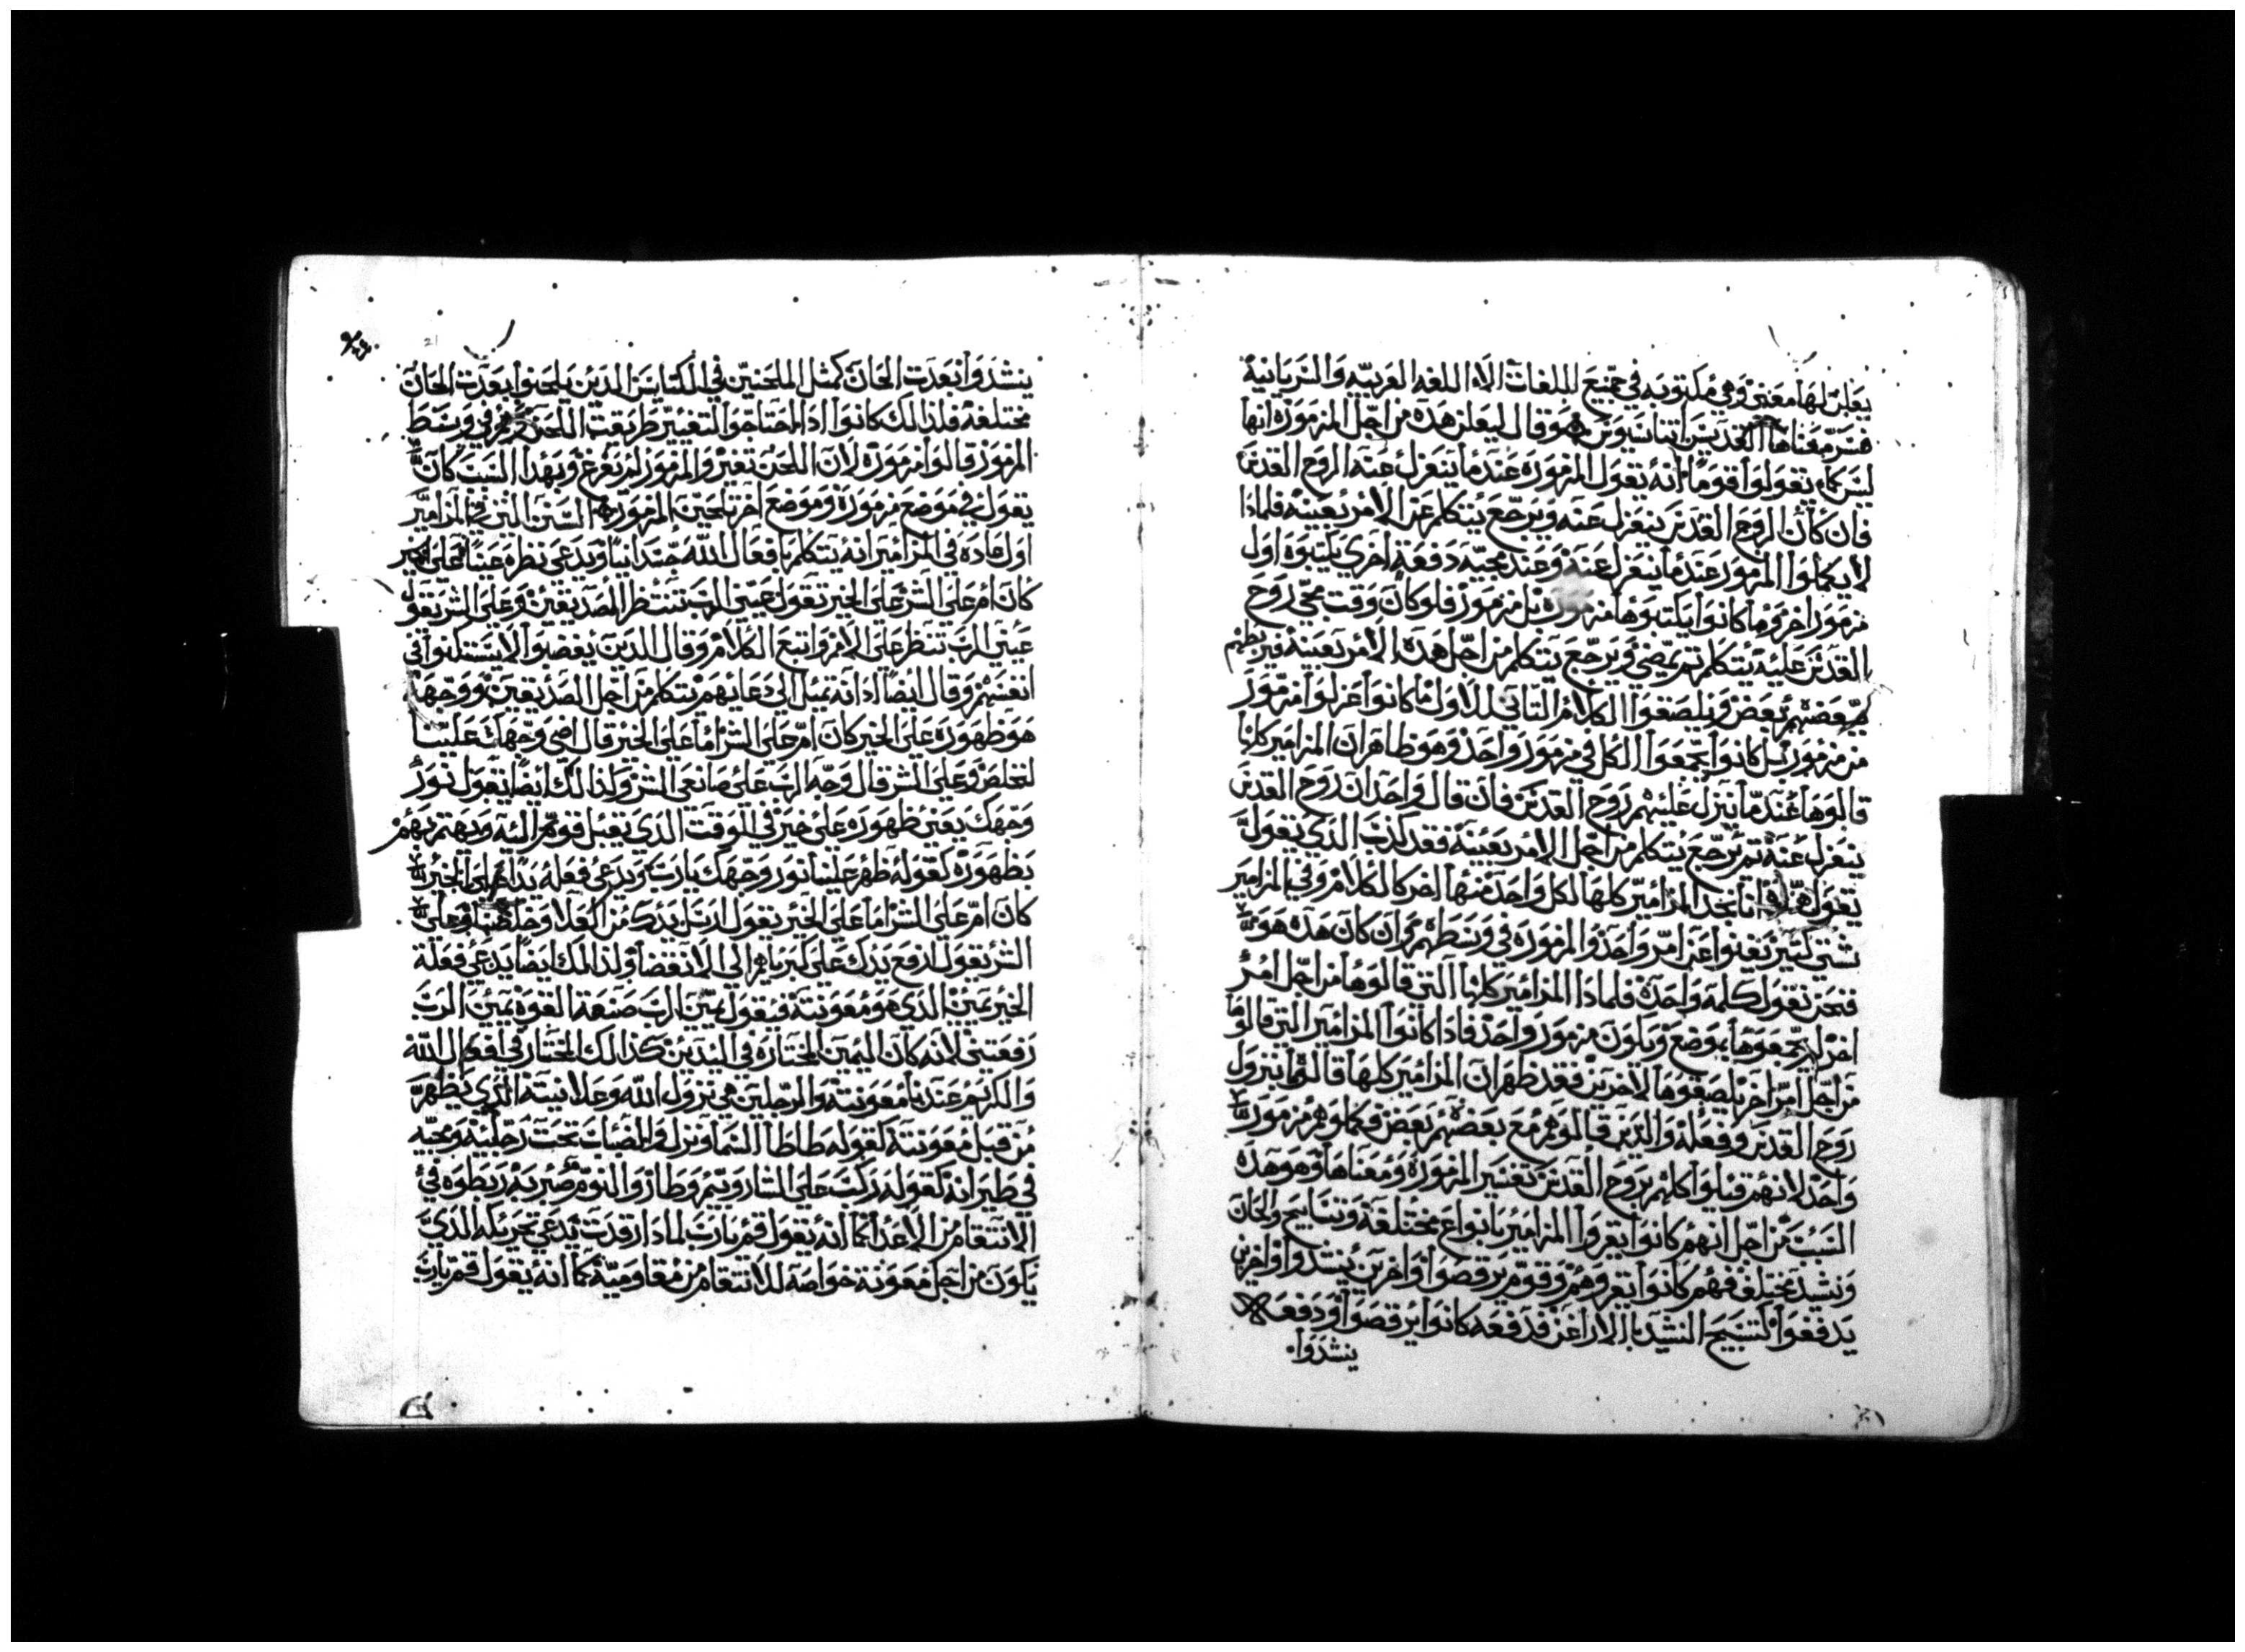 يعلن لها معني وهي مكتوبه في جميع اللغات الا اللغه العربيه والسريانية
فسر معناها القديس اتناسيوس وقال ليعلن هذه من اجل المزمورة انها
ليس كما يقولوا قوما انه يقول المزموره عندما ينعزل عنه الروح القدس
فان كان الروح القدس ينعزل عنه ويرجع يتكلم عن الامر بعينه فلماذا
لا يكملوا المزمور عندما ينعزل عنه وعند مجيه دفعة اخري يكتبوه اول
مزمور اخر وما كانوا يكتبوها مزمورة بل مزمور فلو كان وقت مجي روح
القدس عليه يتكلم ثم يمضي ويرجع يتكلم من اجل هذه الامر بعينه فيربطهم
بعضهم بعض ويلصقوا الكلام التاني للاول ما كانوا عزلوا مزمور
من مزمور بل كانوا يجمعوا الكل في مزمور واحد وهو ظاهر ان المزامير كلها
قالوها عندما ينزل عليهم روح القدس فان قال واحد ان روح القدس
ينعزل عنه ثم يرجع يتكلم من اجل الامر بعينه فقد كذب الذي يقول
يقول انا نجد المزامير كلها لكل واحد منها اخر كالكلام وفي المزامير
شتي كتير يغنوا عن امر واحد والمزموره في وسطهم وان كان هذه هو
فنحن نقول كلمه واحدة فلماذا المزامير كلها التي قالوها من اجل امر
اخر لم يجمعوها بموضع ويكون مزمور واحد فاذا كانوا المزامير التي قالوها
من اجل امر اخر يلصقوها لاخرين فقد ظهر ان المزامير كلها قالوها بنزول
روح القدس وفعله والذين قالوهم مع بعضهم بعض فكملوهم مزمور
واحد لانهم قبلوا كلهم بروح القدس تفسير المزمورة ومعناها وهو هذه
السبب من اجل انهم كانوا يقروا المزامير بانواع مختلفة وتسابيح والحان
ونشيد مختلف فهم كانوا يقروهم وقوم يرقصوا واخرين ينشدوا واخرين
يدفعوا لتسبيح النشيد بالاراغن فدفعه كانوا يرقصوا ودفعة
ينشدوا
ينشدوا بعدت الحان كمثل الملحنين في الكنايس الذين يلحنوا بعدت الحان
مختلفه فلذالك كانوا اذا احتاجوا لتغيير طريقت اللحن في وسط
المزمور قالوا مزمورة لان اللحن تغير والمزمور لم يفرغ وبهذا السبب كان
يقول في موضع مزمورة وموضع اخر تلحين المزمورة السنن التي في المزامير
اول عاده في المزامير انه يتكلم بافعال الله جسدانيا ويدعي نظره عينا علي الخير
كان ام علي الشر علي الخير يقول عيني الرب تنتظر الصديقين وعلي الشر يقول
عيني الرب تنظر علي الامر واتبع الكلام وقال الذين يغضبوا لا يستكنوا في
انفسهم وقال ايضا اذانه تميل الي دعايهم يتكلم من اجل الصديقين ووجهه
هو ظهوره علي الخير كان ام علي الشر اما علي الخير قال اضي وجهك علينا
لنخلص وعلي الشر قال وجه الرب علي صانعي الشر ولذالك ايضا يقول نور
وجهك يعني ظهوره علي خير في الوقت الذي يقبل قوم اليه ويهتم بهم
بظهوره كقوله ظهر علينا نور وجهك يارب ويدعي فعله يدا علي الخير
كان ام علي الشر اما علي الخير يقول ارسل يدك من العلا وخلصنا وعلي
الشر يقول ارفع يدك علي كبرياهم الي الانقضا ولذالك ايضا يدعي فعله
الخير يمين الذي هو معونته فيقول يمين الرب صنعة القوه يمين الرب
رفعتني لانه كان اليمين المختاره في اليدين كذالك المختار في افعال الله
والكريم عندنا معونته والرجلين هي نزول الله وعلانيته الذي يظهر
من قبل معونته كقوله طاطا السما ونزل والضباب تحت رجليه ومجيه
في طيرانه كقوله ركب علي الشاروبيم وطار والنوم صبر به ربطوه في
الانتقام من الاعدا كما انه يقول قم يارب لماذا رقدت يدعي تحريكه الذي
يكون من اجل معونة خواصه للانتقام من مقاوميه كما انه يقول قم يارب